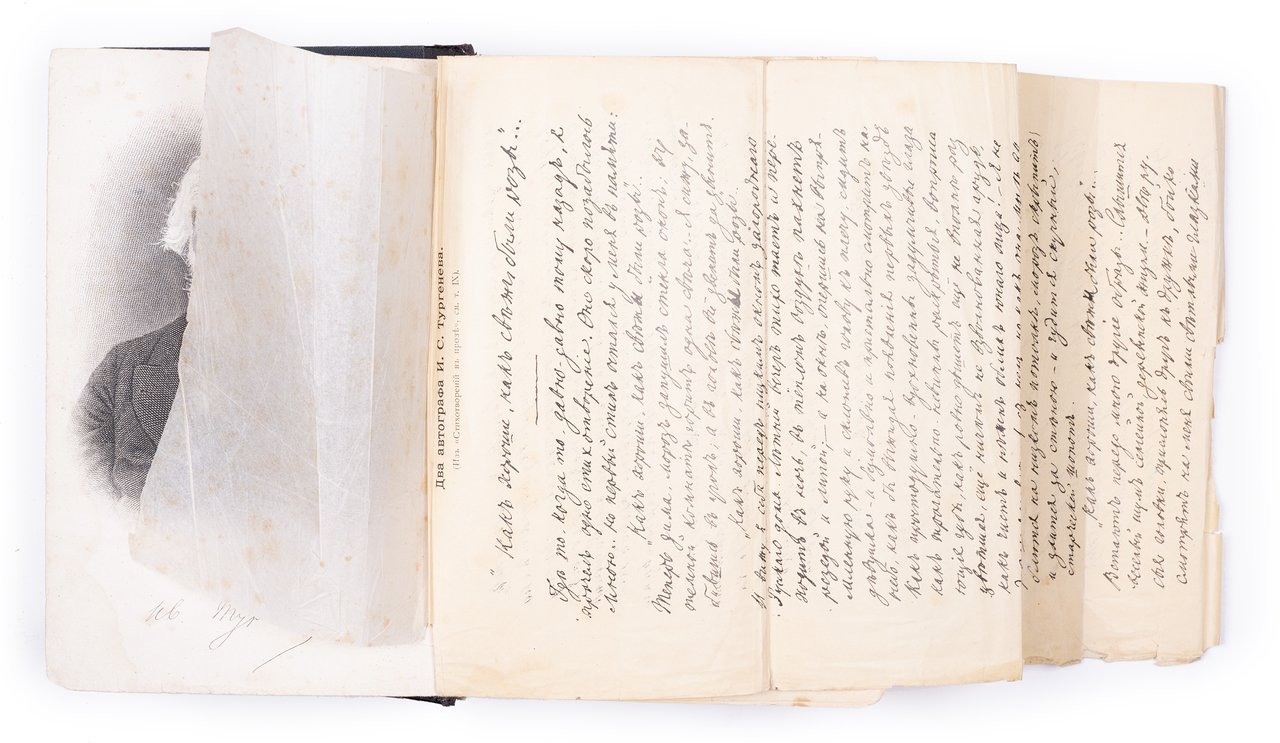 Ив. Тур
Два автографа И. С. Тургенева.
(Изъ «Стихотворенiй въ прозѣ», см. т. IX).
„Какъ хороши, какъ свѣжи были розы"...
Гдѣ то когда то давно-давно тому назадъ, я
прочелъ одно стихотворенiе. Оно скоро позабылось
мною... но первый стихъ остался у меня въ памяти:
„Какъ хороши, какъ свѣжи были розы".
Теперь зима; морозъ запушилъ стёкла оконъ; въ
темной комнатѣ горитъ одна свѣча. Я сижу, за-
бившись въ уголъ; а въ головѣ всё звенитъ да звенитъ:
„Какъ хороши, какъ свѣжи были розы"
И вижу я себя передъ низкимъ окномъ загороднаго
русскаго дома. Лѣтнiй вечеръ тихо таетъ и пере-
ходитъ въ ночь, въ тепломъ воздухѣ пахнетъ
резедой и липой; — а на окнѣ, опершись на выпрям-
ленную руку и склонивъ голову къ плечу, сидитъ
дѣвушка — и безмолвно и пристально смотритъ на
небо, какъ бы выжидая появленiя первыхъ звѣздъ.
Какъ простодушно-вдохновенны задумчивые глаза
какъ трогательно-невинны раскрытыя, вопроша-
ющiя губы, какъ ровно дышетъ ещё не вполнѣ рас-
цвѣтшая, ещё ничѣмъ не взволнованная грудь,
какъ чистъ и нѣженъ обликъ юнаго лица! — Я не
блятся на низкомъ потолкѣ, морозъ скрыпитъ
и злится за стѣною — и чудится скучный,
старческiй шопотъ.
„Какъ хороши, какъ свѣжи были розы"...
Встаютъ передо мною другiе образы... Слышится
веселый шумъ семейной деревенской жизни. Двѣ ру-
сыя головки, прислонясь другъ къ дружкѣ, бойко
смотрятъ на меня своими свѣтлыми глазками